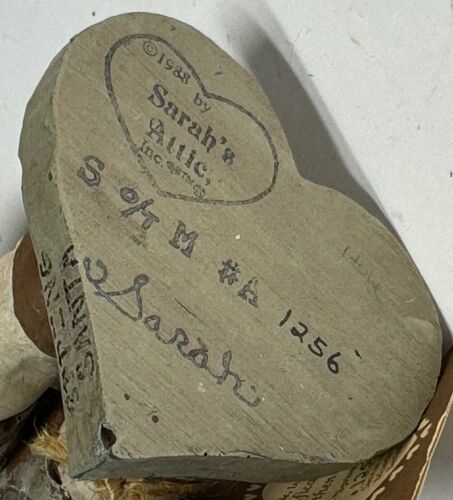 ©1988 by
Sarah's
Attic,
Inc.
S O/T M #A 1256
Sarah